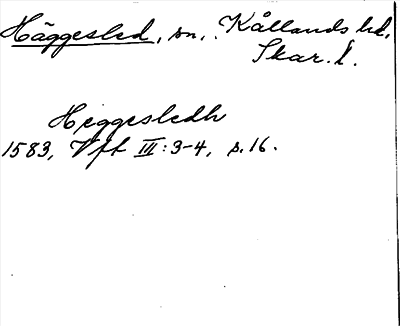 Häggesled, sn, Kållands hd,
Skar. l.
Heggesledh
1583, Vft III:3-4, s.16.